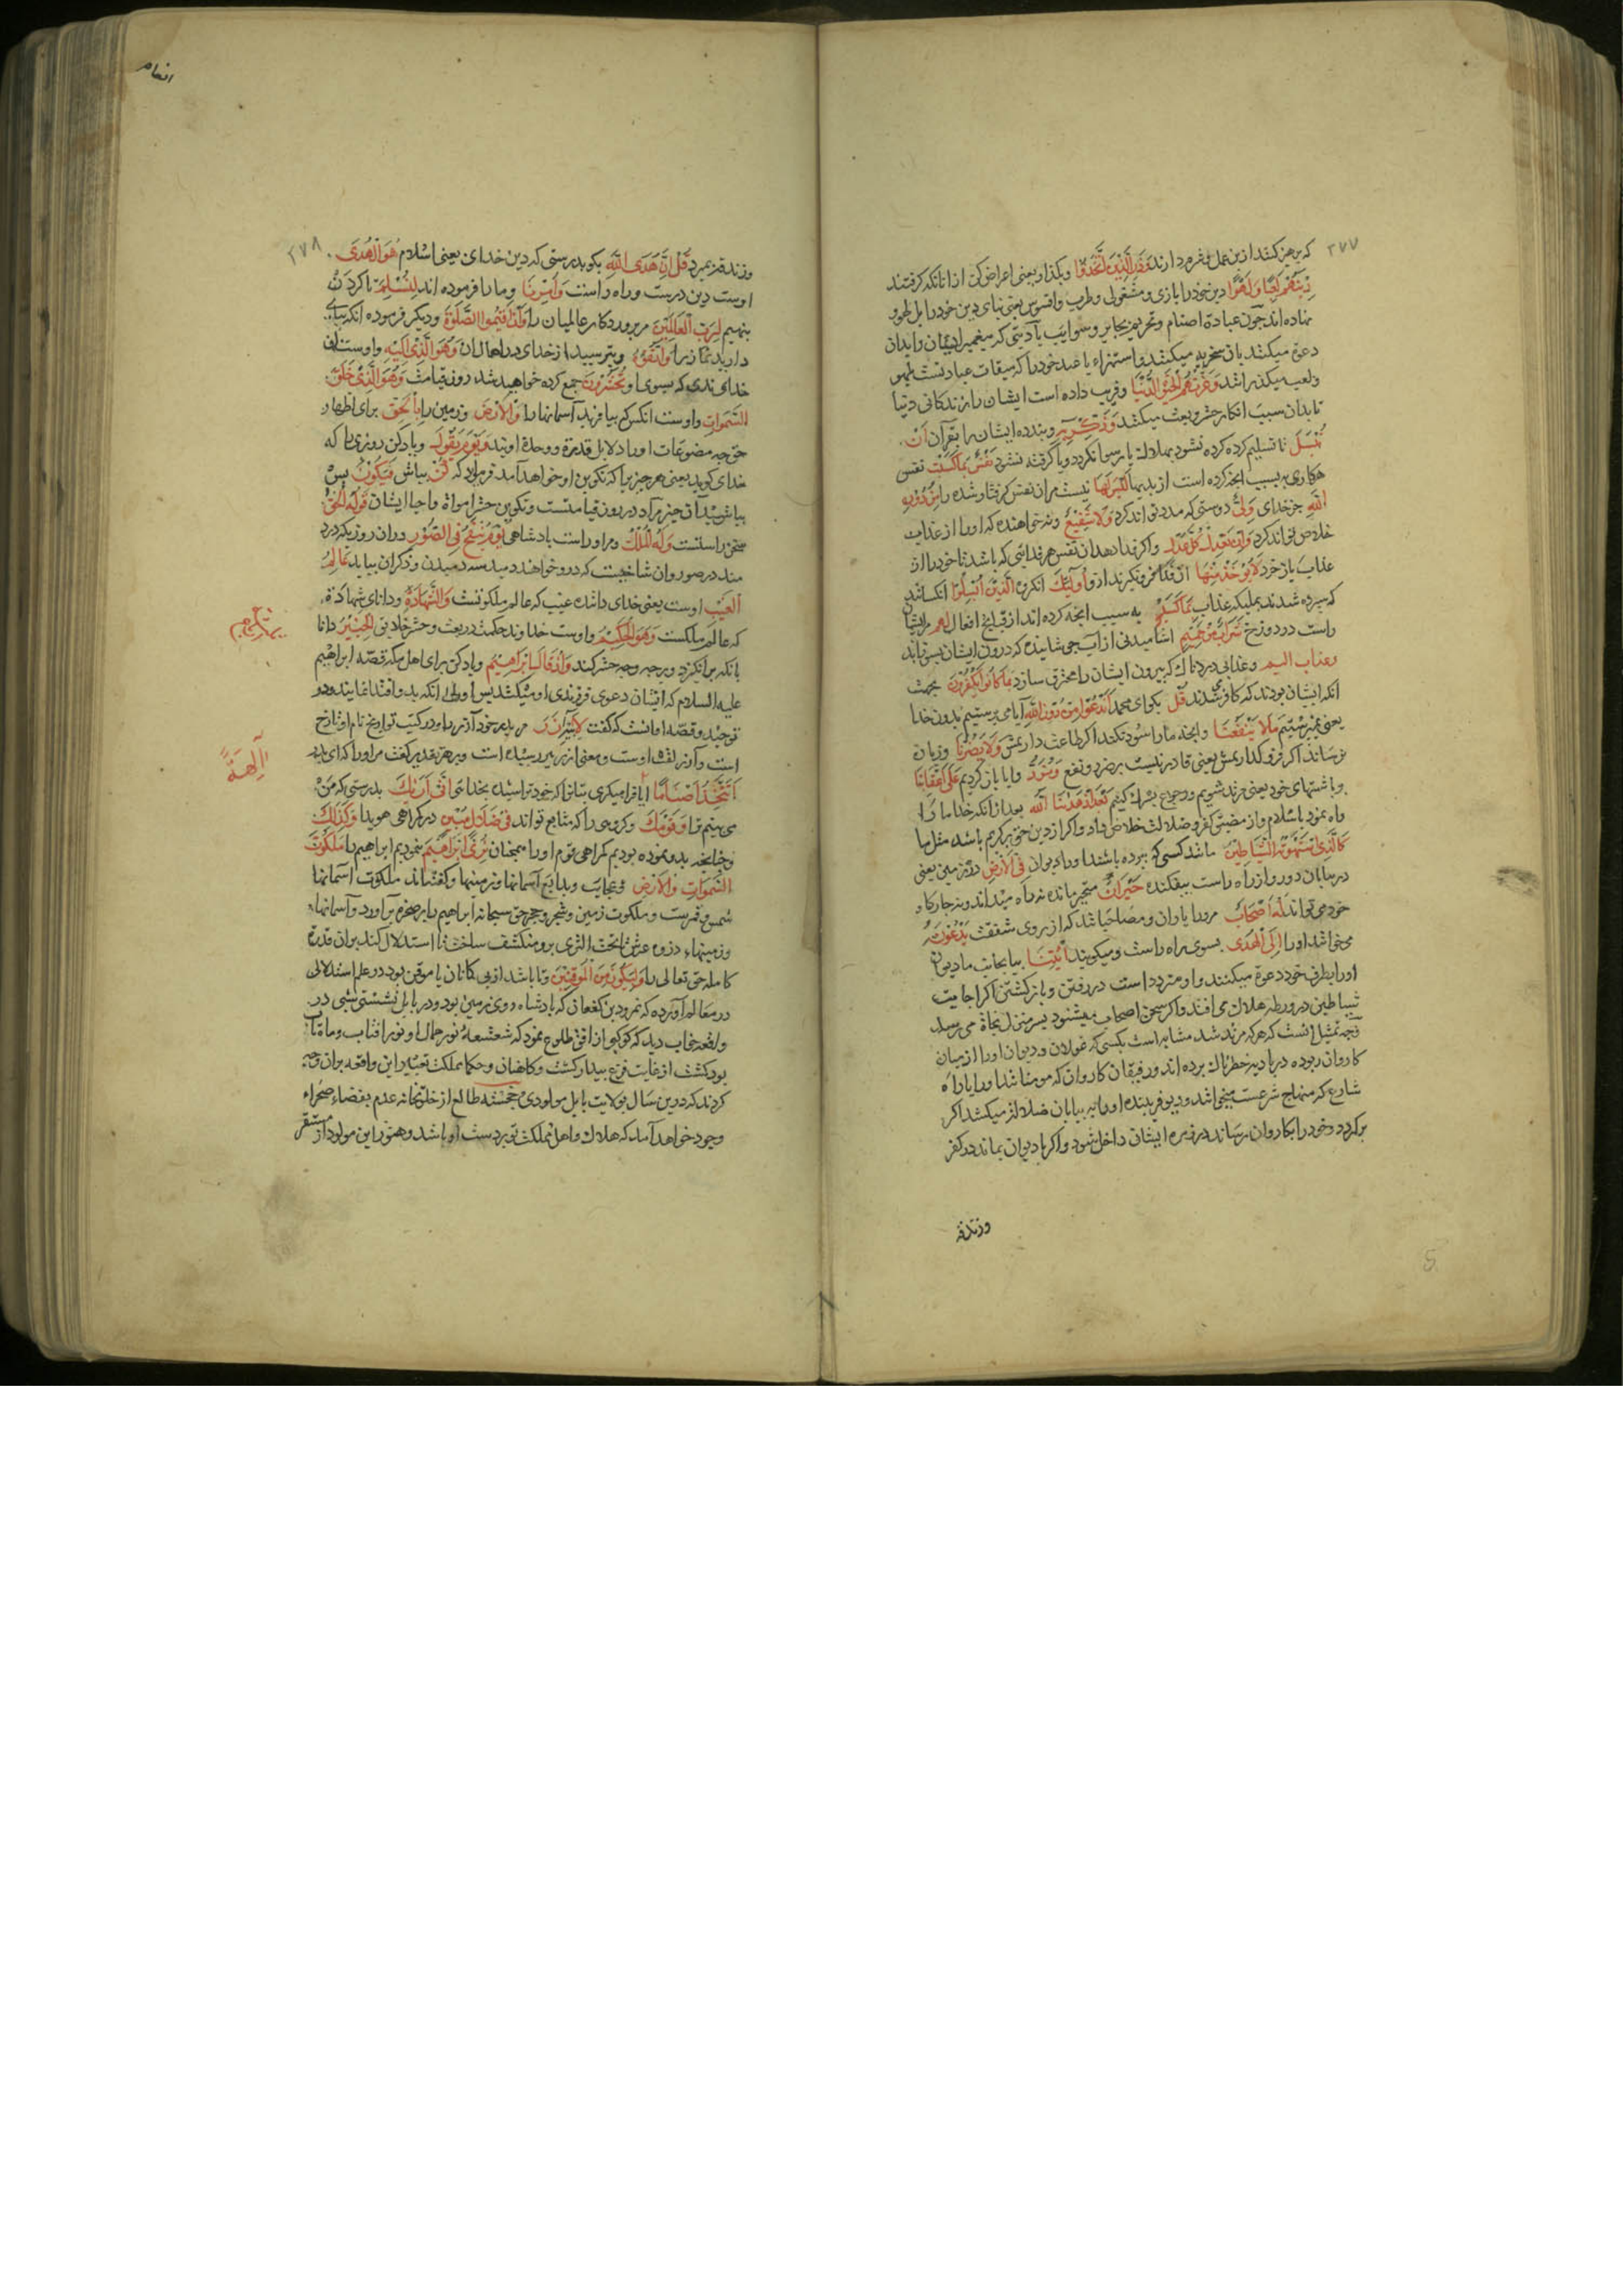 ۲۷۷
که پرهیز کنند ازین عمل شرم دارند وَذَرِ الَّذِينَ اتَّخَذُوا وبگذار یعنی اعراض کن از انانکه گرفتند
دِينَهُمْ لَعِبًا وَلَهْوًا دین خود را بازی ومشغولی وطرب وافسوس یعنی بنای دین خود را بر لهو و
نهاده اند چون عبادة اصنام وتحریم بحایر وسوایب یا دینی که پیغمبر ایشان را بدان
دعوة میکند بان سخریه میکنند واستهزاء یا عید خود را که میقات عبادتست بلهو
ولعب میگذرانند وَغَرَّتْهُمُ الْحَيٰوةُ الدُّنْيَا وفریب داده است ایشان را زندگانی دنیا
تا بدان سبب انکار حشر وبعث میکنند وَذَكِّرْ بِهِ وپند ده ایشان را بقرآن اَنْ
تُبْسَلَ تا تسلیم کرده نشود بهلاکة یا رسوا نگردد ویا گرفته نشود نَفْسٌ بِمَا كَسَبَتْ نفس
هرکاری بسبب انچه کرده است از بدیها لَيْسَ لَهَا نیست مران نفس گرفتار شده را مِنْ دُونِ
اللّٰهِ جز خدای وَلِيٌّ دوستی که مدد تواند کرد وَلَا شَفِيعٌ ونه خواهنده که اورا از عذاب
خلاص تواند کرد وَاِنْ تَعْدِلْ كُلَّ عَدْلٍ واگر فدا دهد ان نفس هر فدایی که باشد تا خود را از
عذاب باز خرد لَا يُؤْخَذْ مِنْهَا ان فدا فرو نگیرند ازو اُولٰئِكَ انگروه الَّذِينَ اُبْسِلُوا انکسانند
که سپرده شدند بملیکه عذاب بِمَا كَسَبُوا به سبب انچه کرده اند از قبایح افعال لَهُمْ مرایشان
راست در دوزخ شَرَابٌ مِنْ حَمِيمٍ اشامیدنی از آب جوشانیده که درون ایشان بسوزاند
وعذاب الیم وعذابی دردناك که بیرون ایشان را محترق سازد بِمَا كَانُوا يَكْفُرُونَ بجهت
انکه ایشان بودند که کافر شدند قُلْ بگوای محمد اَنَدْعُوا مِنْ دُونِ اللّٰهِ آیا می پرستیم بدون خدا
یعنی نپرستیم مَا لَا يَنْفَعُنَا وانچه مارا سود نکند اگر طاعت داریمش وَلَا يَضُرُّنَا وزیان
نرساند اگر فرو گذاریمش یعنی قادر نیست بر ضرر ونفع وَنُرَدُّ وایا باز گردیم عَلٰى اَعْقَابِنَا
بر پاشنهای خود یعنی مرتد شویم ورجوع بشرك کنیم بَعْدَ اِذْ هَدٰينَا اللّٰهُ بعد از انکه خدا ما را
راه نمود باسلام واز مضیق کفر وضلالت خلاص داد واگر از دین حق برگردیم باشد مثل ما
كَالَّذِى اسْتَهْوَتْهُ الشَّيَاطِينُ مانند کسی که برده باشند اورا دیوان فِى الْاَرْضِ در زمین یعنی
در بیابان دور واز راه راست بیفکنده حَيْرَانَ متحیر مانده نه راه میداند ونه چاره کار
خود می تواند لَهُ اَصْحَابٌ مرورا یاران ومصاحبا باشد که از روی شفقت يَدْعُونَهُ
می خوانند اورا اِلَى الْهُدَى بسوی راه راست ومیگویند اْئْتِنَا بیا بجانب ما دیوان
اورا بطرف خود دعوة میکنند واو متردد است در رفتن وباز گشتن اگر اجابت
شیاطین در ورطه هلاك می افتد واگر سخن اصحاب میشنود بسر منزل نجاة می رسد
وجه تمثیل انست که هرکه مرتد شد مشابه است بکسی که غولان ودیوان اورا از میان
کاروان ربوده در بادیه خطرناك برده اند ورفیقان کاروان که مومنانند اورا براه
شارع که منهاج شرعست میخوانند ودیو فریبنده اورا به بیابان ضلالة میکشد اگر
برگردد وخود را بکاروان رساند در زمره ایشان داخل شود واگر با دیوان بماند در کفر
وزندقه
انعام
۲۷۸
وزندقه بمیرد قُلْ اِنَّ هُدَى اللّٰهِ بگو بدرستی که دین خدای یعنی اسلام هُوَ الْهُدٰى
اوست دین درست وراه راست وَاُمِرْنَا وما را فرموده اند لِنُسْلِمَ تا گردن
بنهیم لِرَبِّ الْعَالَمِينَ مر پروردگار عالمیان را وَاَنْ اَقِيمُوا الصَّلٰوةَ ودیگر فرموده انکه بپای
دارید نماز را وَاتَّقُوهُ وبترسید از خدای در اهمال ان وَهُوَ الَّذِى اِلَيْهِ واوست ان
خدای ندی که بسوی او تُحْشَرُونَ جمع کرده خواهید شد روز قیامت وَهُوَ الَّذِى خَلَقَ
السَّمٰوَاتِ واوست انکس که بیافرید آسمانها را وَالْاَرْضَ وزمین را بِالْحَقِّ برای اظهار
حق چه مصنوعات اورا دلایل قدرة ووحدة اویند وَيَوْمَ يَقُولُ ویاد کن روزی را که
خدای گوید یعنی هر چیزیرا که تکوین او خواهد آمد فرماید که كُنْ بباش فَيَكُونُ پس
بباشد آن چیز مراد روز قیامتست وتکوین حشر امواة واحیا ایشان قَوْلُهُ الْحَقُّ
سخن راستست وَلَهُ الْمُلْكُ ومر اوراست بادشاهی يَوْمَ يُنْفَخُ فِى الصُّورِ دران روز که در
مند در صور وان شاخیست که درو خواهند دمید سه دمیدن وذکر ان بیاید عَالِمُ
الْغَيْبِ اوست یعنی خدای داننده غیب که عالم ملکوتست وَالشَّهَادَةِ ودانای شهادة
که عالم ملکست وَهُوَ الْحَكِيمُ واوست خداوند حکمت در بعث وحشر خلایق الْخَبِيرُ دانا
بانکه برانگیزد وبر چه وجه حشر کند وَاِذْ قَالَ اِبْرٰهِيمُ ویاد کن برای اهل مکه قصه ابراهیم
علیه السلام که ایشان دعوی فرزندی او میکنند پس اولی انکه بدو اقتدا نمایند در
توحید وقصه او انست که گفت لِاَبِيهِ اٰزَرَ مر پدر خود آزر را ودر کتب تواریخ نام او تارخ
است وآزر لقب اوست ومعنی ازر پیر رسیده است وبر هر تقدیر گفت مر اورا که ای پدر
اَتَتَّخِذُ اَصْنَامًا ایا فرا میگیری بتانرا که خود تراشیده بخدایی اِنِّى اَرٰيكَ بدرستی که من
می بینم ترا وَقَوْمَكَ وگروهی را که متابع تواند فِى ضَلَالٍ مُبِينٍ در گمراهی هویدا وَكَذٰلِكَ
وچنانچه بدو نموده بودیم گمراهی قوم اورا همچنان نُرِى اِبْرٰهِيمَ نمودیم ابراهیم را مَلَكُوتَ
السَّمٰوَاتِ وَالْاَرْضِ عجایب وبدایع آسمانها وزمینها وگفته اند ملکوت اسمانها
شمس وقمرست وملکوت زمین وشجر وحجر حق سبحانه ابراهیم را بر صخره برآورد وآسمانها
وزمینها از ذروه عرش تا تحت الثری برو منکشف ساخت تا استدلال کند بران قدرة
کامله حق تعالی را وَلِيَكُونَ مِنَ الْمُوقِنِينَ وتا باشد از بی گمانان یا موقن بود در علم استدلالی
در معالم آورده که نمرود بن کنعان که بادشاه روی زمین بود ودر بابل نشستی شبی در
واقعه خواب دید که کوکبی از افق طلوع نمود که شعشعه نور جمال او نور افتاب وماه تاب
بود گشت از غایت فزع بیدار گشت وکاهنان وحکما مملکت تعبیر این واقعه بران وجه
کردند که درین سال بولایت بابل مولودی خجسته طالع از خلوتخانه عدم بفضاء صحراء
وجود خواهد آمد که هلاك واهل مملکت تو بردست او باشد وهنوز این مولود از مستقر
اٰلِهَةً